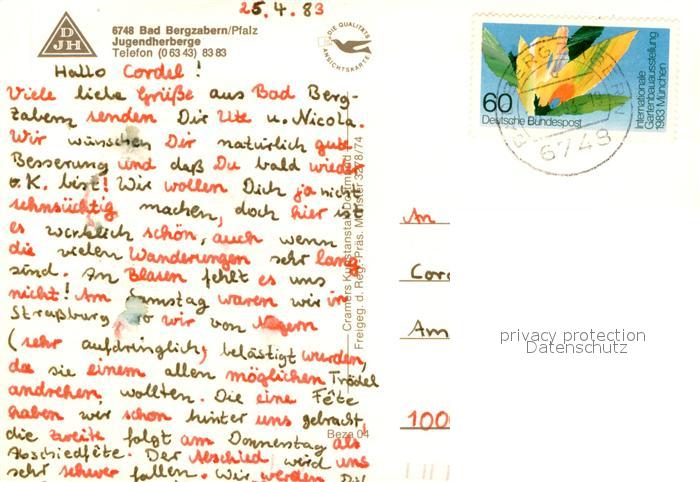 25.4.83
DJH
6748 Bad Bergzabern/Pfalz
Jugendherberge
Telefon (0 63 43) 83 83
DIE QUALITÄTS
ANSICHTSKARTE
Hallo Cordel!
Viele liebe Grüße aus Bad Berg-
zabern senden Dir Ute u. Nicola.
Wir wünschen Dir natürlich gute
Besserung und daß Du bald wieder
o.K. bist! Wir wollen Dich ja nicht
sehnsüchtig machen, doch hier ist
es wirklich schön, auch wenn
die vielen Wanderungen sehr lang
sind. An Blasen fehlt es uns
nicht! Am Samstag waren wir in
Straßburg wo wir von Negern
(sehr aufdringlich) belästigt wurden,
da sie einem allen möglichen Trödel
andrehen wollten. Die eine Fête
haben wir schon hinter uns gebracht,
die zweite folgt am Donnerstag als
Abschiedfête. Der Abschied wird uns
sehr schwer fallen. Wir werden
Cramers Kunstanstalt Dortmund
Freigeg. d. Reg.-Präs. Münster 3278/74
Beza 04
60
Deutsche Bundespost
Internationale
Gartenbauausstellung
1983 München
6748
An
Cor
Am
100
privacy protection
Datenschutz